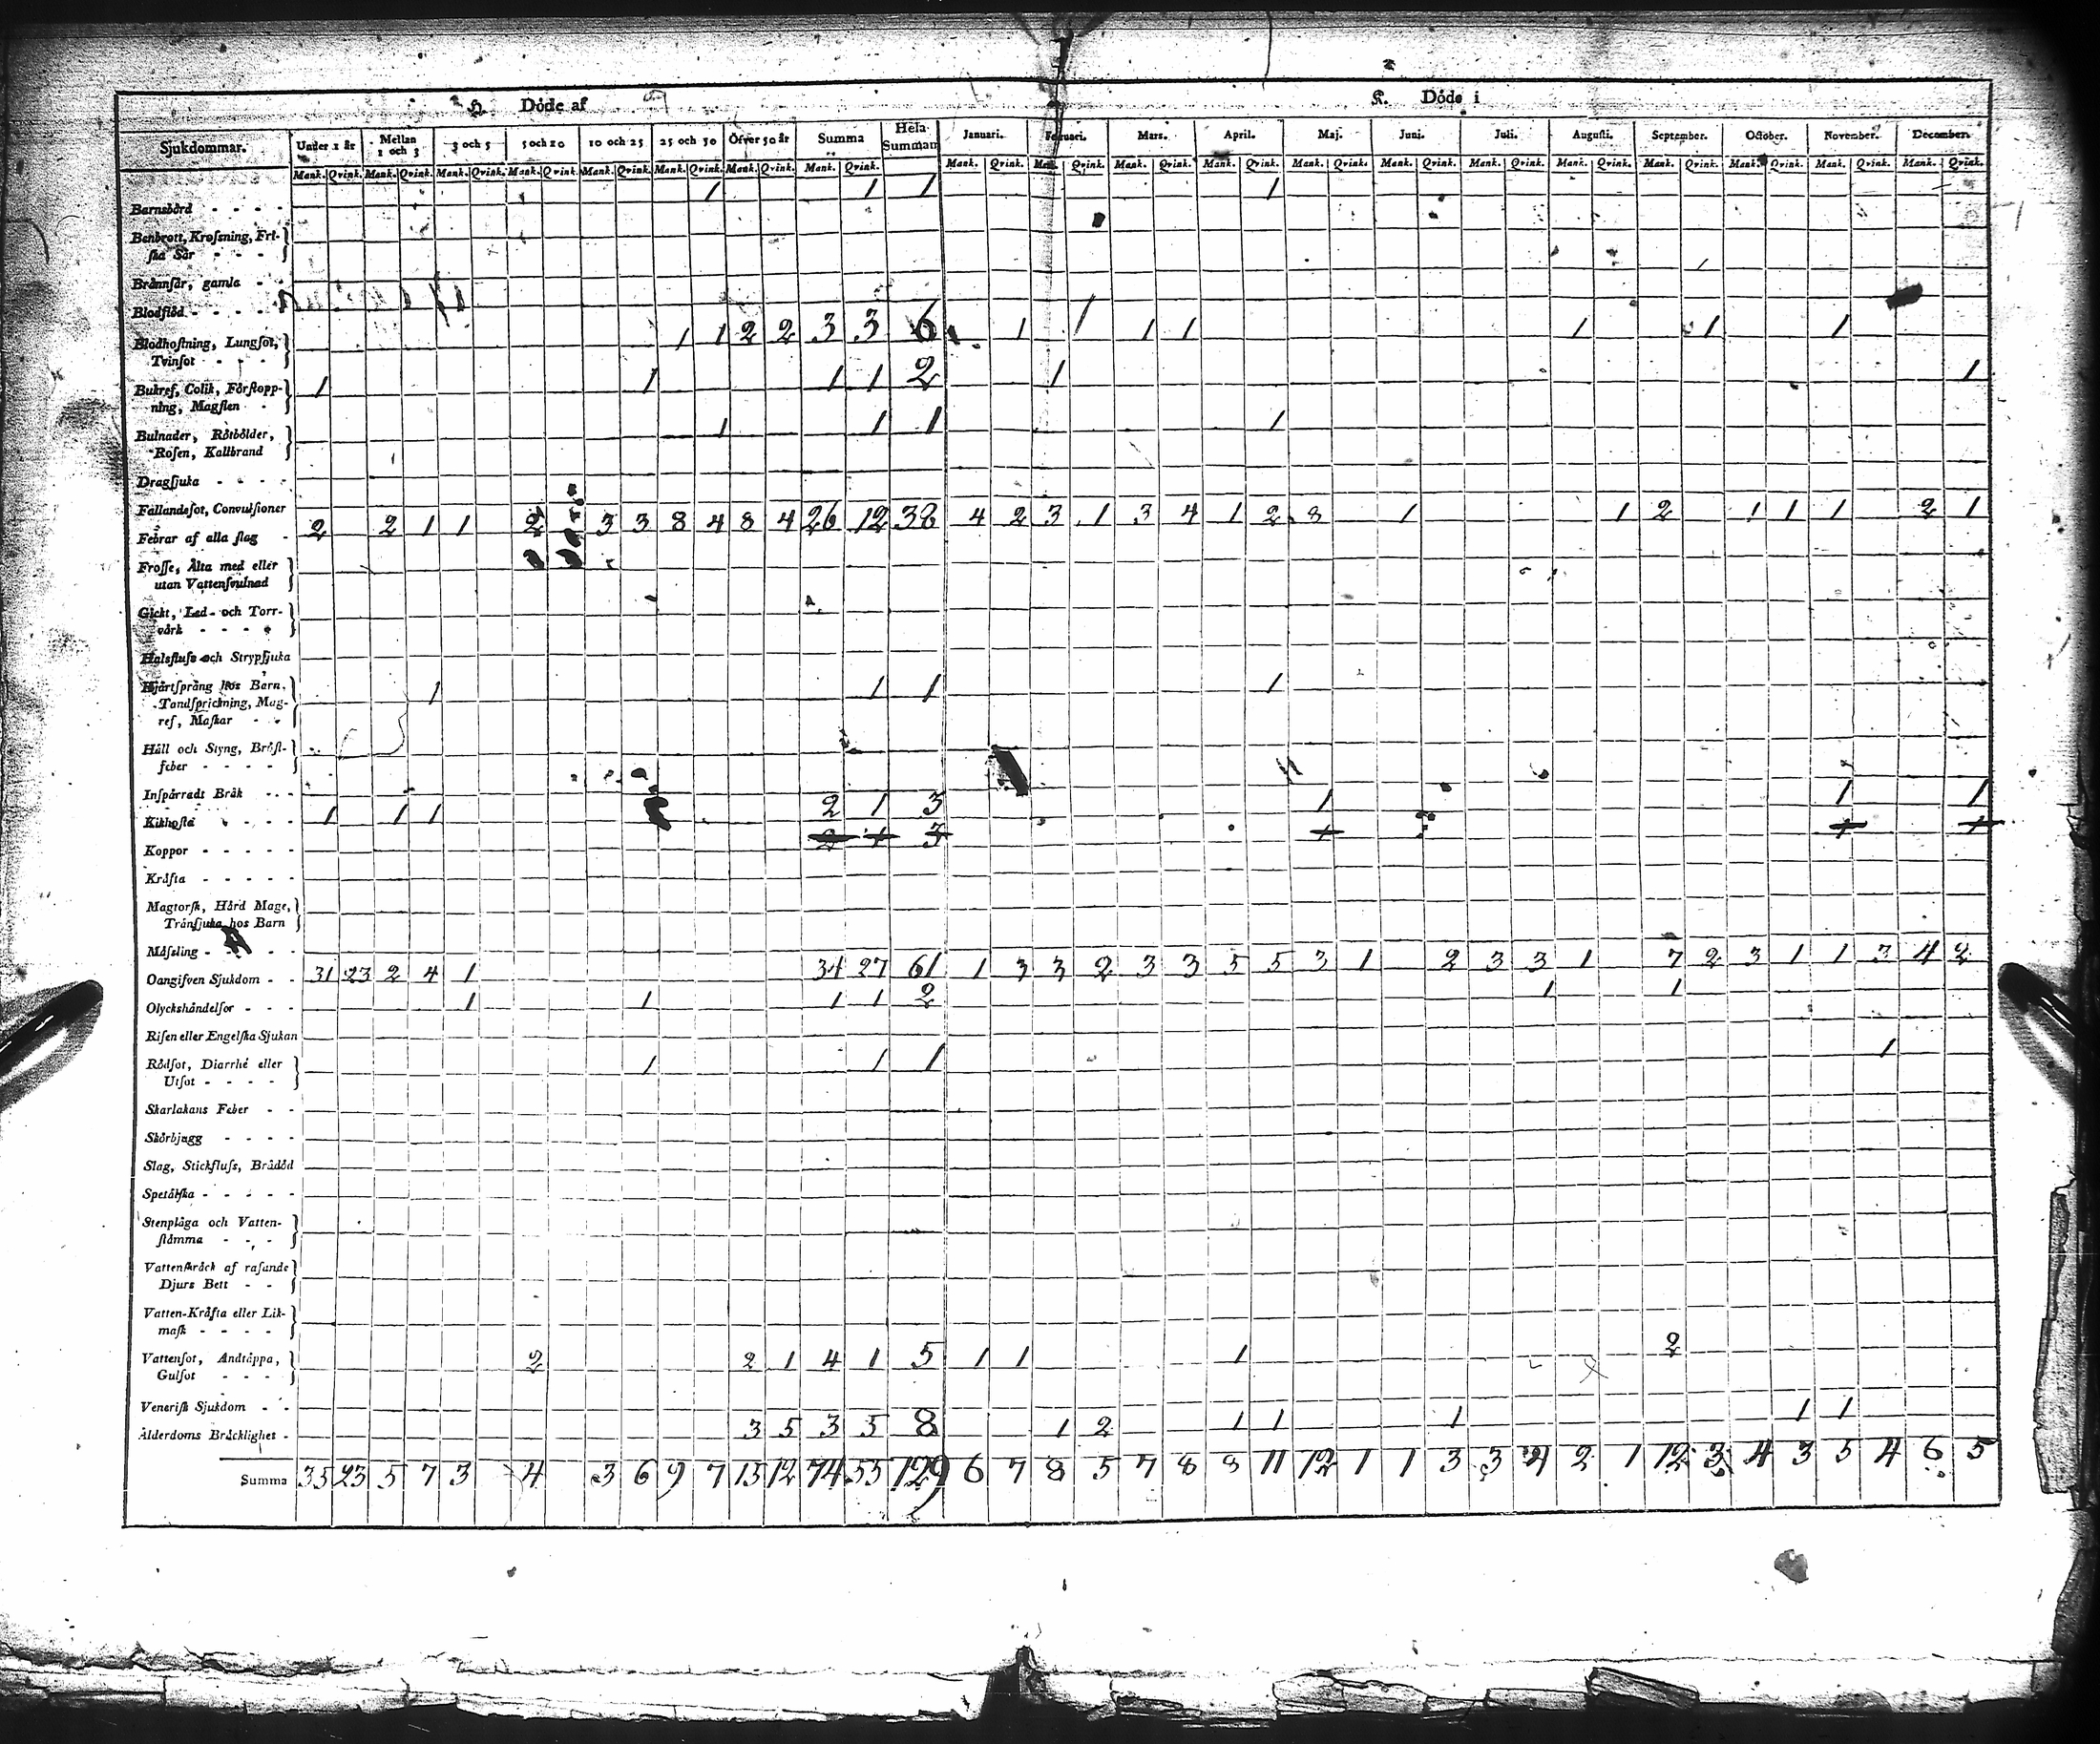 H. Döde af K. Döde i
Sjukdommar. Under 1 år Mellan 1 och 3 3 och 5 5 och 10 10 och 25 25 och 50 Öfver 50 år Summa Hela Summan Januari. Februari. Mars. April. Maj. Juni. Juli. Augusti. September. October. November. December.
Mank. Qvink. Mank. Qvink. Mank. Qvink. Mank. Qvink. Mank. Qvink. Mank. Qvink. Mank. Qvink. Mank. Qvink. Mank. Qvink. Mank. Qvink. Mank. Qvink. Mank. Qvink. Mank. Qvink. Mank. Qvink. Mank. Qvink. Mank. Qvink. Mank. Qvink. Mank. Qvink. Mank. Qvink. Mank. Qvink.
Barnsbörd - - - - 1 1 1 1
Benbrott, Krossning, Fri-
ska Sår - - -
Brännsår, gamla - -
Blodflöd - - - - -
Blodhostning, Lungsot, 1 1 2 2 3 3 6 1 1 1 1 1 1 1
Tvinsot - - -
Bukref, Colik, Förstopp- 1 1 1 1 2 1 1
ning, Magslen -
Bulnader, Rötbölder, 1 1 1 1
Rosen, Kallbrand
Dragsjuka - - - -
Fallandesot, Convulsioner
Febrar af alla slag - 2 2 1 1 2 3 3 8 4 8 4 26 12 38 4 2 3 1 3 4 1 2 8 1 1 2 1 1 1 2 1
Frosse, Älta med eller
utan Vattensvulnad
Gickt, Led- och Torr-
värk - - - -
Halsfluss och Strypsjuka
Hjärtsprång hos Barn, 1 1 1 1
Tandsprickning, Mag-
ref, Maskar - -
Håll och Styng, Bröst-
feber - - - -
Inspärradt Bråk - - -
Kikhosta - - - - 1 1 1 2 1 3 1 1 1
Koppor - - - - - 2 1 3 1 1 1
Kräfta - - - - -
Magtorsk, Hård Mage,
Trånsjuka hos Barn
Mässling - - - -
Oangifven Sjukdom - - 31 23 2 4 1 34 27 61 1 3 3 2 3 3 5 5 3 1 2 3 3 1 7 2 3 1 1 3 4 2
Olyckshändelser - - - 1 1 1 1 2 1 1
Risen eller Engelska Sjukan
Rödsot, Diarrhé eller 1 1 1 1
Utsot - - - -
Skarlakans Feber - -
Skörbjugg - - - -
Slag, Stickfluss, Brådöd
Spetälska - - - - -
Stenplåga och Vatten-
stämma - - -
Vattenskräck af rasande
Djurs Bett - -
Vatten-Kräfta eller Lik-
mask - - - -
Vattensot, Andtäppa, 2 2 1 4 1 5 1 1 1 2
Gulsot - - - -
Venerisk Sjukdom - -
Ålderdoms Bräcklighet - 3 5 3 5 8 1 2 1 1 1 1 1
Summa 35 23 5 7 3 4 3 6 9 7 15 12 74 55 129 6 7 8 5 7 8 8 11 12 1 1 3 3 4 2 1 12 3 4 3 5 4 6 5